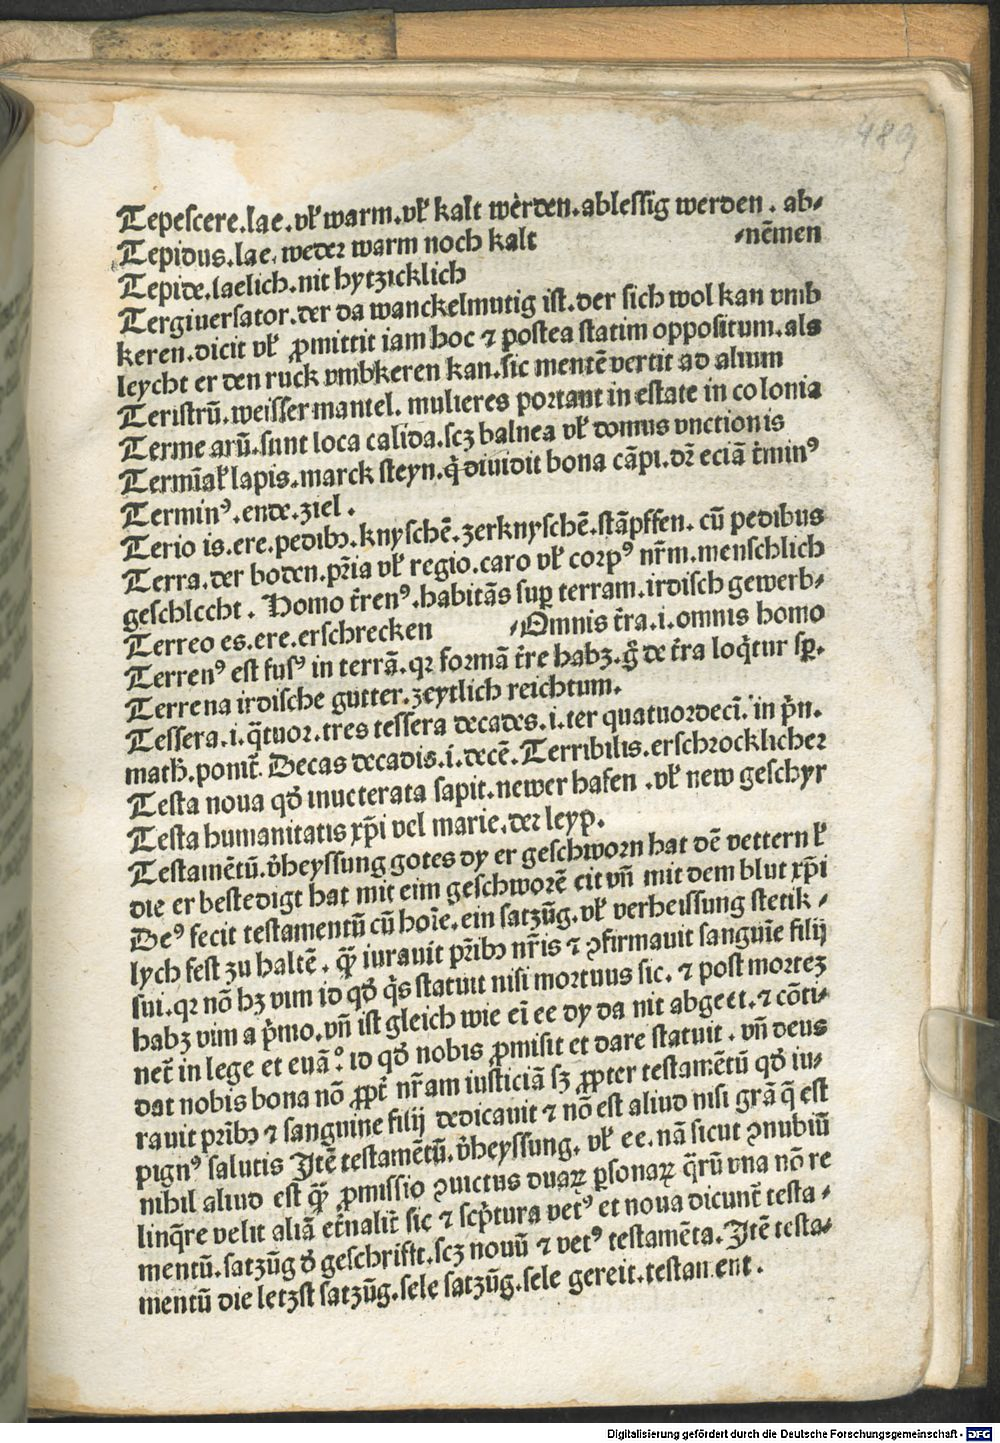 489
Tepeſcere.lae.vƚ warm.vƚ kalt werden.ableſſig werden . ab⸗
Tepidus.lae.weder warm noch kalt ⸗nēmen
Tepide.laelich.nit hytzicklich
Tergiuerſator.der da wanckelmutig iſt.der ſich wol kan vmb
keren.dicit vƚ ꝓmittit iam hoc ⁊ poſtea ſtatim oppoſitum.als
leycht er den ruck vmbkeren kan.ſic mentē vertit ad alium
Teriſtrū.weiſſer mantel. mulieres portant in eſtate in colonia
Terme arū.ſunt loca calida.ſcꝫ balnea vƚ domus vnctionis
Termīaƚ lapis.marck ſteyn.q̇ diuidit bona cāpi.dr̄ eciā t̄minꝰ
Terminꝰ.ende.ziel.
Terio is.ere.pedibꝫ.knyſchē.zerknyſchē.ſtāpffen. cū pedibus
Terra.der boden.pr̄ia vƚ regio.caro vƚ corpꝰ nr̄m.menſchlich
geſchlecht . Homo t̄renꝰ.habitās ſuꝑ terram.irdiſch gewerb⸗
Terreo es.ere.erſchrecken ⸗Omnis t̄ra.i.omnis homo
Terrenꝰ eſt fuſꝰ in terrā.qꝛ formā t̄re habꝫ.g̊ de t̄ra loq̄tur ſꝑ.
Terrena irdiſche gutter.zeytlich reichtum.
Teſſera.i.q̄tuor.tres teſſera decades.i.ter quatuordecī. in p̄n.
math̄.pomt̄. Decas decadis.i.decē.Terribilis.erſchrocklicher
Teſta noua qð inueterata ſapit.newer hafen .vƚ new geſchyr
Teſta humanitatis xp̄i vel marie.der leyp.
Teſtamētū.v̄heyſſung gotes dy er geſchworn hat dē vettern ƚ
die er beſtedigt hat mit eim geſchworē eit vn̄ mit dem blut xp̄i
Deꝰ fecit teſtamentū cū hoīe.ein ſatzūg.vƚ verheiſſung ſtetik ⸗
lych feſt zu haltē . qꝫ iurauit pr̄ibꝫ nr̄is ⁊ ꝯfirmauit ſanguīe filij
ſui.qꝛ nō hꝫ vim id qð q̇s ſtatuit niſi mortuus ſic. ⁊ poſt mortez
habꝫ vim a p̄mo.vn̄ iſt gleich wie eī ee dy da nit abgeet.⁊ cōti⸗
net̄ in lege et euā.º id qð nobis ꝓmiſit et dare ſtatuit . vn̄ deus
dat nobis bona nō ꝓpt̄ nr̄am iuſticiā ſꝫ ꝓpter teſtamētū qð iu⸗
rauit pr̄ibꝫ ⁊ ſanguine filij dedicauit ⁊ nō eſt aliud niſi grā q̄ eſt
pignꝰ ſalutis Jtē teſtamētū.v̄heyſſung. vƚ ee.nā ſicut ꝯnubiū
nihil aliud eſt qꝫ ꝓmiſſio ꝯuictus duaꝝ ꝑſonaꝝ q̄rū vna nō re
linq̄re velit aliā et̄nalit̄ ſic ⁊ ſcp̄tura vetꝰ et noua dicunt̄ teſta ⸗
mentū.ſatzūg ð geſchrifft.ſcꝫ nouū ⁊ vetꝰ teſtamēta.Jtē teſta⸗
mentū die letzſt ſatzūg.ſele ſatzūg.ſele gereit.teſtament .
Digitalisierung gefördert durch die Deutsche Forschungsgemeinschaft - DFG